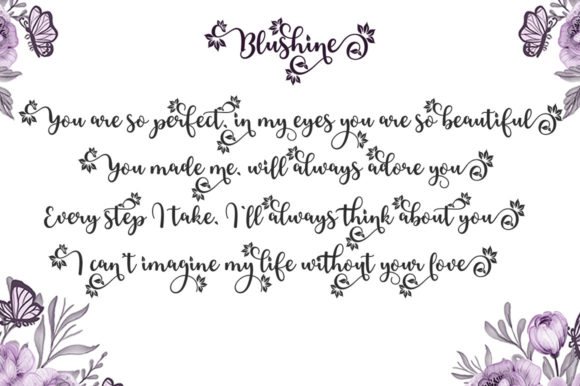 Blushine
You are so perfect, in my eyes you are so beautiful
You made me, will always adore you
Every step I take, I'll always think about you
I can't imagine my life without your love